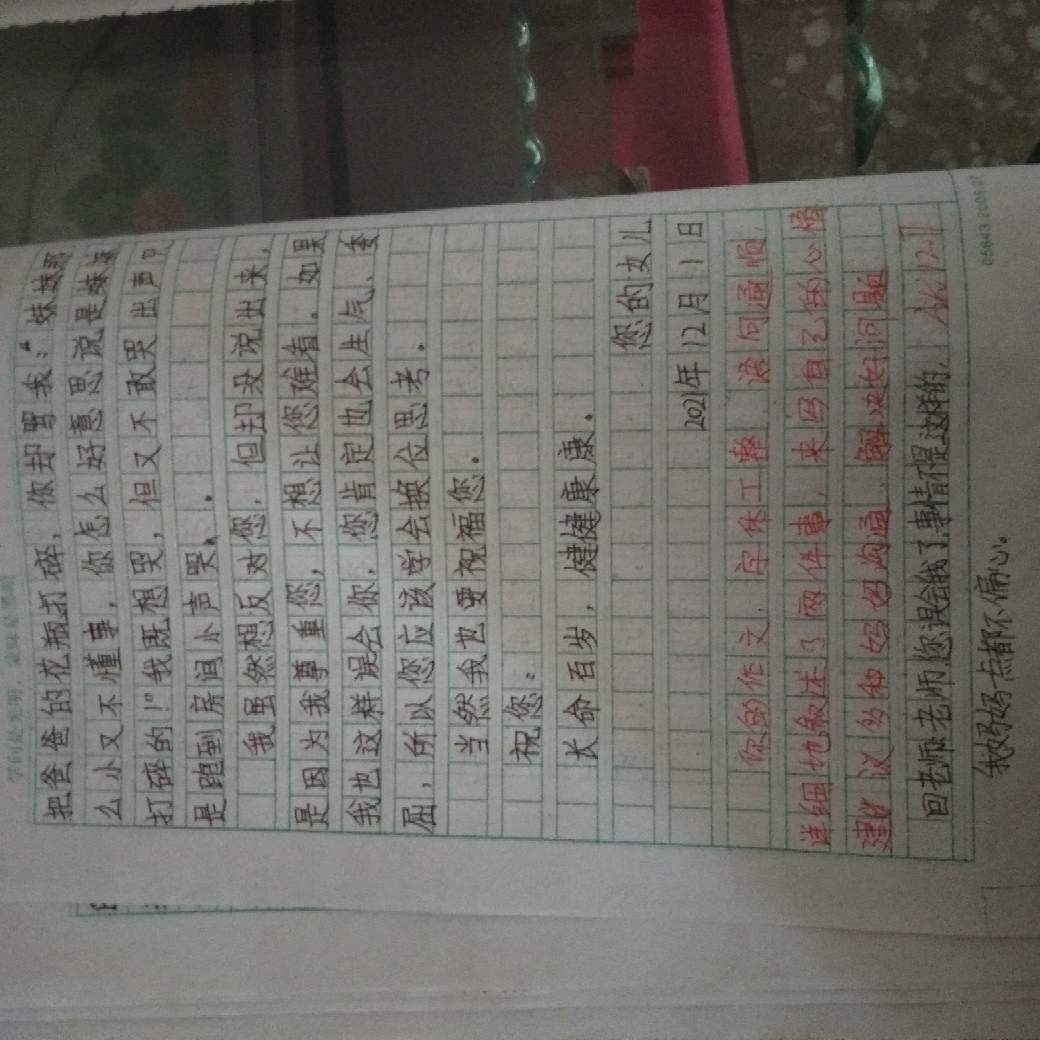 学问是光明，蒙昧是黑暗
把爸爸的花瓶打碎，你却骂我：“妹妹那
么小又不懂事，你怎么好意思说是妹妹
打碎的！”我既想哭，但又不敢哭出声只
是跑到房间小声哭。
我虽然想反对您，但却没说出来，
是因为我尊重您，不想让您难看。如果
我也这样误会你，您肯定也会生气、委
屈，所以您应该学会换位思考。
当然我也要祝福您。
祝您：
长命百岁，健健康康。
您的女儿
2021年12月1日
你的作文，字体工整，语句通顺，
详细地叙述了两件事，来写自己的心情，
建议多和妈妈沟通，解决好问题
12.7
回老师:老师,您误会我了,事情不是这样的,
我妈妈一点都不偏心。
05843.2009.07